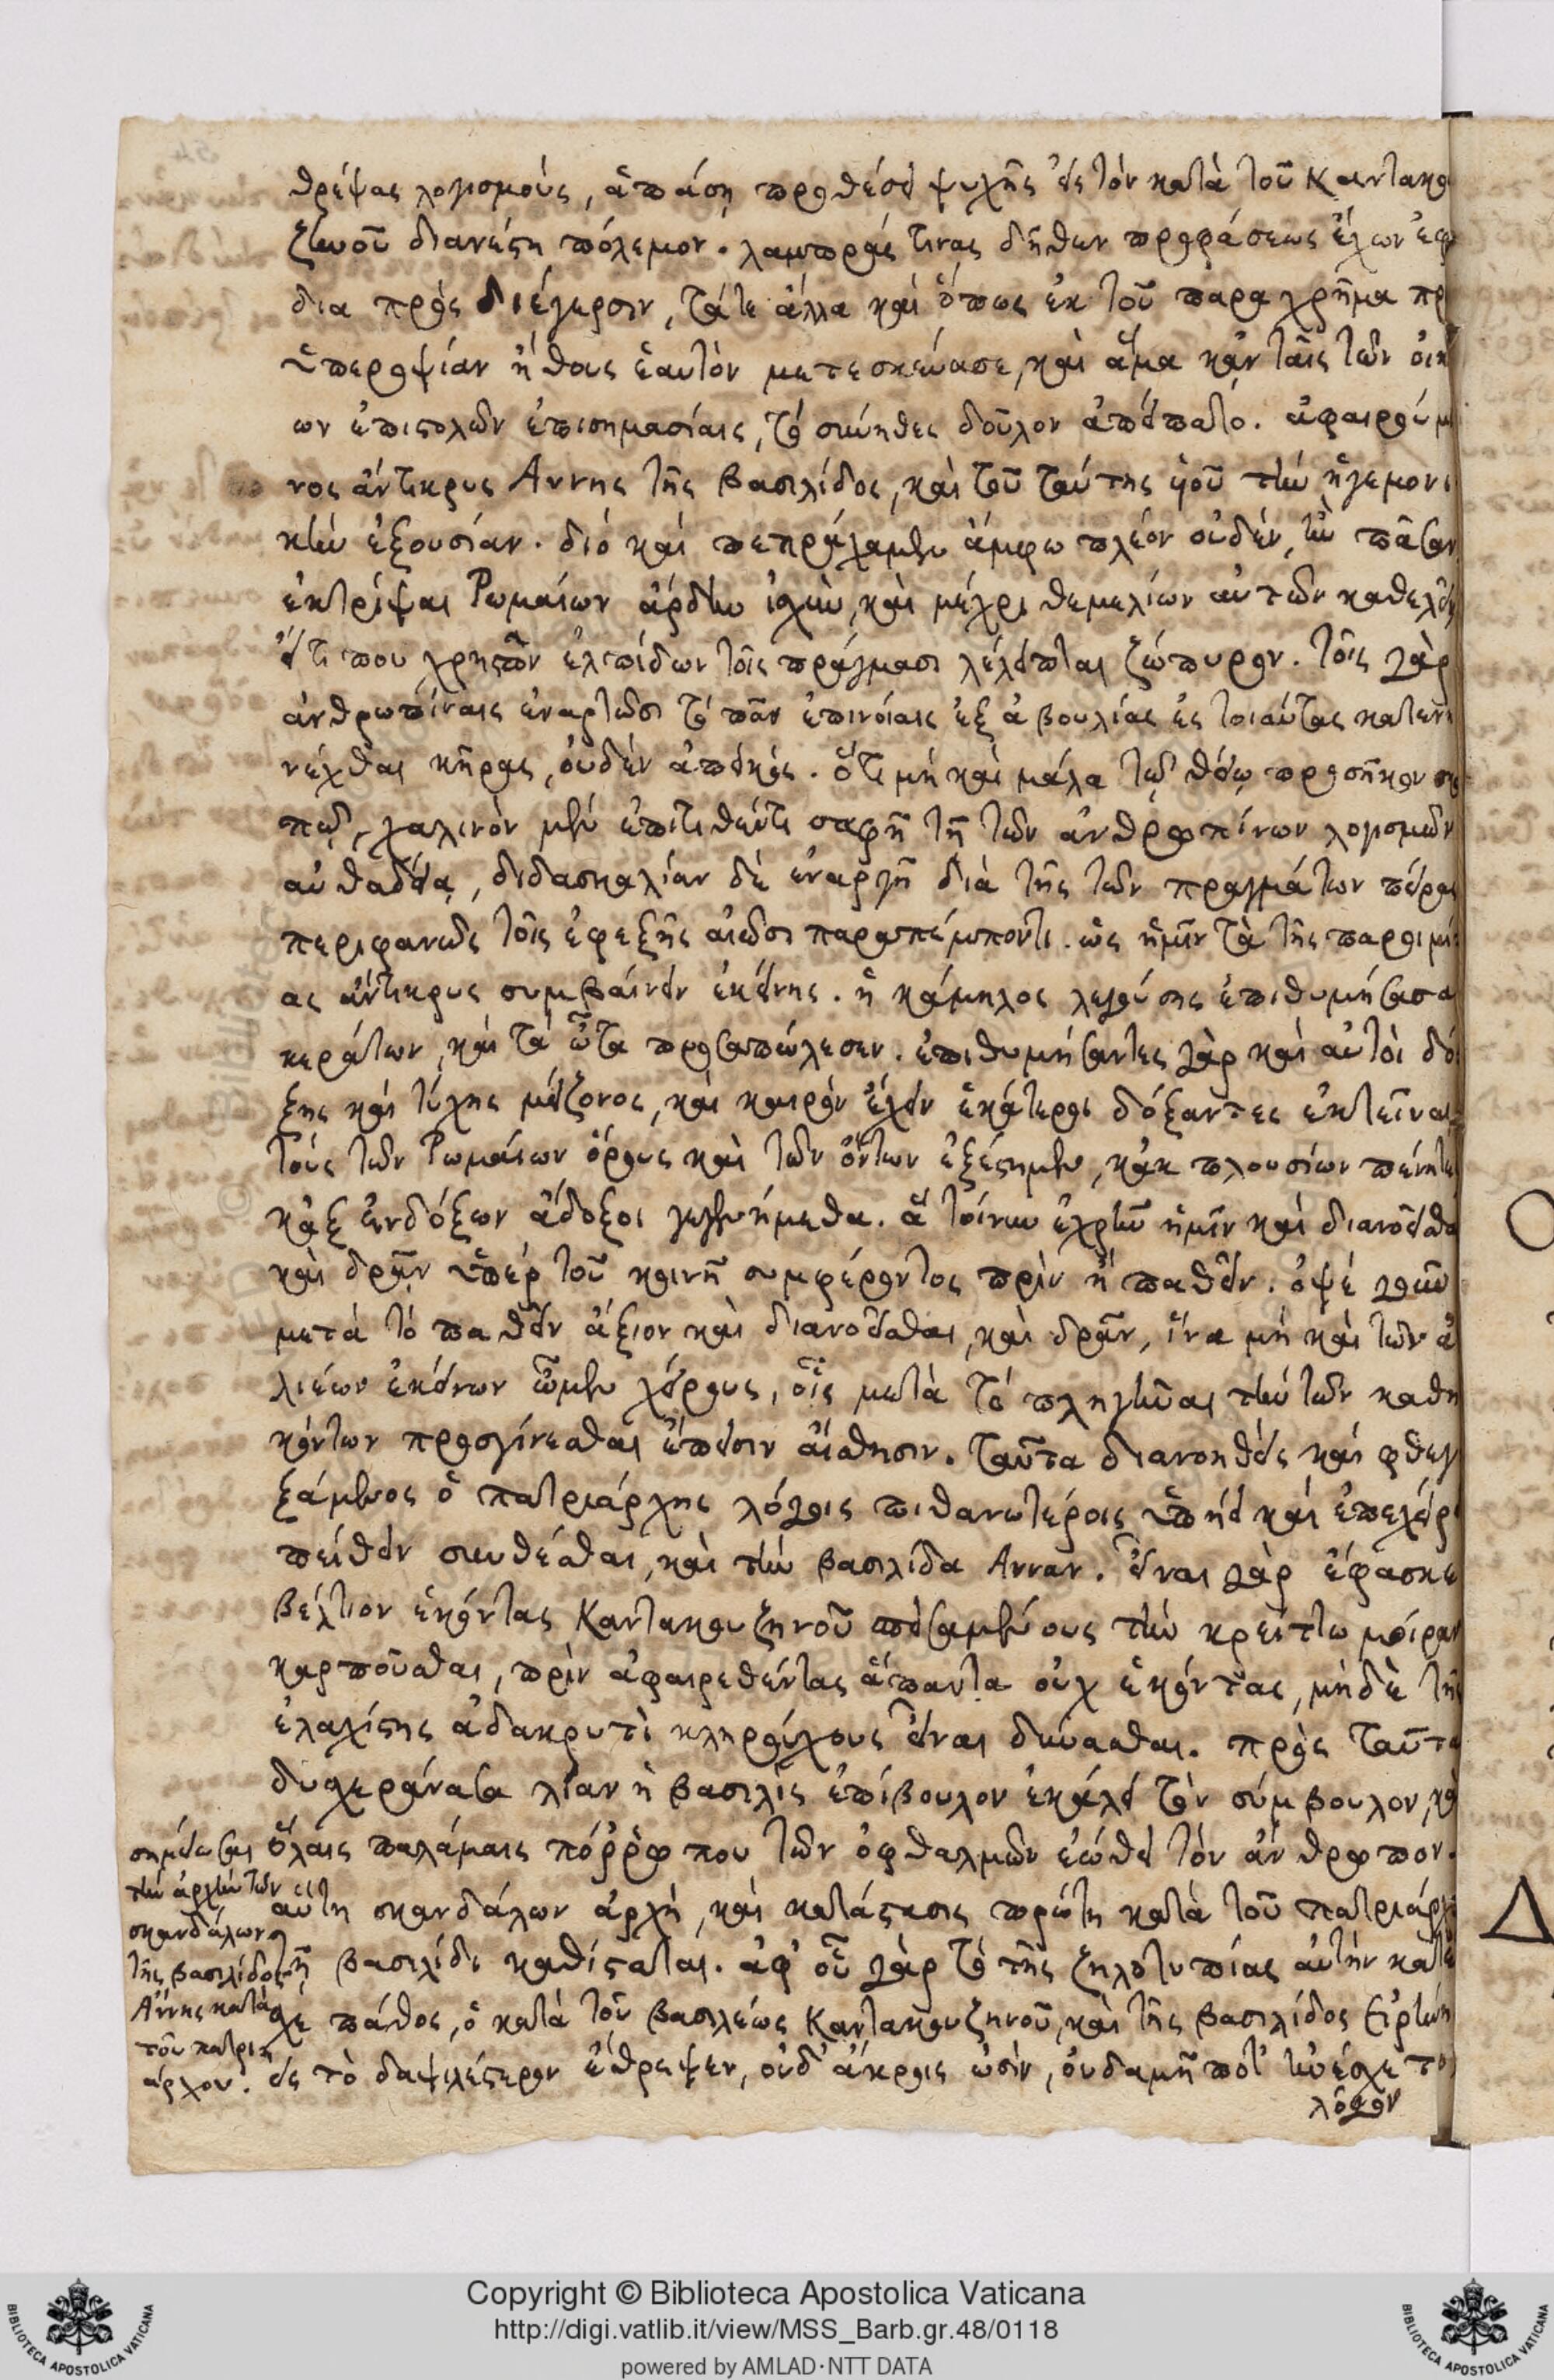 θρέψας λογισμούς, ἁπάση προθέσει ψυχῆς εἰς τὸν κατὰ τοῦ Καντακου
ζηνοῦ διανέστη πόλεμον. λαμπράς τινας δῆθεν προφάσεως ἔχων ἐφό
δια πρὸς διέγερσιν, τά τε ἄλλα καὶ ὅπως ἐκ τοῦ παραχρῆμα πρ
ὑπεροψίαν ἤθους ἑαυτὸν μετεσκεύασε, καὶ ἅμα κἀν ταῖς τῶν οἰκεί
ων ἐπιστολῶν ἐπισημασίαις, τὸ σύνηθες δοῦλον ἀπείπατο. ἀφαιρούμε
νος ἄντικρυς Ἄννης τῆς βασιλίδος, καὶ τοῦ ταύτης υἱοῦ τὴν ἡγεμονι
κὴν ἐξουσίαν. διὸ καὶ πεπράχαμεν ἄμφω πλέον οὐδὲν, ἢ πᾶσαν
ἐκτρίψαι Ῥωμαίων ἄρδην ἰσχὺν, καὶ μέχρι θεμελίων αὐτῶν καθελεῖν
εἴ τι που χρηστῶν ἐλπίδων τοῖς πράγμασι λέλειπται ζώπυρον. τοῖς γὰρ
ἀνθρωπίναις ἐναρτῶσι τὸ πᾶν ἐπινοίαις ἐξ ἀβουλίας ἐς τοιαύτας κατενη
νέχθαι κῆρας, οὐδὲν ἀπεικός. ὅτι μὴ καὶ μάλα τῷ θείῳ προσῆκον σκο
πῷ, χαλινὸν μὲν ἐπιτιθέντι σαφῆ τῇ τῶν ἀνθρωπίνων λογισμῶν
αὐθαδείᾳ, διδασκαλίαν δὲ ἐναργῆ διὰ τῆς τῶν πραγμάτων πείρας
περιφανῶς τοῖς ἐφεξῆς αἰῶσι παραπέμποντι. ὡς ἡμῖν τὰ τῆς παροιμί
ας ἄντικρυς συμβαίνειν ἐκείνης. ἡ κάμηλος λεγούσης ἐπιθυμήσασα
κεράτων, καὶ τὰ ὦτα προσαπώλεσεν. ἐπιθυμήσαντες γὰρ καὶ αὐτοὶ δό
ξης καὶ τύχης μείζονος, καὶ καιρὸν ἔχειν ἑκάτεροι δόξαντες ἐκτεῖναι
τοὺς τῶν Ῥωμαίων ὅρους καὶ τῶν ὄντων ἐξέστημεν, κἀκ πλουσίων πένητες
κἀξ ἐνδόξων ἄδοξοι γεγενήμεθα. ἃ τοίνυν ἐχρῆν ἡμῖν καὶ διανοεῖσθαι
καὶ δρᾷν ὑπὲρ τοῦ κοινῇ συμφέροντος πρὶν ἢ παθεῖν. ὀψὲ γοῦν
μετὰ τὸ παθεῖν ἄξιον καὶ διανοεῖσθαι, καὶ δρᾷν, ἵνα μὴ καὶ τῶν ἁ
λιέων ἐκείνων ὦμεν χείρους, οἷς μετὰ τὸ πληγῆναι τὴν τῶν καθη
κόντων προσγίνεσθαι ἔπεισιν αἴσθησιν. ταῦτα διανοηθεὶς καὶ φθεγ
ξάμενος ὁ πατριάρχης λόγοις πιθανωτέροις ὑπῄει καὶ ἐπεχείρει
πείθειν συνθέσθαι, καὶ τὴν βασιλίδα Ἄνναν. εἶναι γὰρ ἔφασκε
βέλτιον ἑκόντας Καντακουζηνοῦ πεισαμένους τὴν κρείττω μοῖραν
καρποῦσθαι, πρὶν ἀφαιρεθέντας ἅπαντα οὐχ ἑκόντας, μηδὲ τῆς
ἐλαχίστης ἀδακρυτὶ κληρούχους εἶναι δύνασθαι. πρὸς ταῦτα
δυσχεράνασα λίαν ἡ βασιλὶς ἐπίβουλον ἐκάλει τὸν σύμβουλον, καὶ
ὅλαις παλάμαις πόῤῥω που τῶν ὀφθαλμῶν ἐώθει τὸν ἄνθρωπον.
αὕτη σκανδάλων ἀρχὴ, καὶ κατάστασις πρώτη κατὰ τοῦ πατριάρχου
τῇ βασιλίδι καθίσταται. ἀφ' οὗ γὰρ τὸ τῆς ζηλοτυπίας αὐτὴν κατέ
σχε πάθος, ὃ κατὰ τοῦ βασιλέως Καντακουζηνοῦ, καὶ τῆς βασιλίδος Εἰρήνης
εἰς τὸ δαψιλέστερον ἔθρεψεν, οὐδ' ἄκροις ὠσὶν, οὐδαμῆ ποτ' ἠνέσχετο
λόγον
σημείωσαι
τὴν ἀρχὴν τῶν
σκανδάλων
τῆς βασιλίδος
Ἄννης κατὰ
τοῦ πατρι
άρχου.
Copyright © Biblioteca Apostolica Vaticana
http://digi.vatlib.it/view/MSS_Barb.gr.48/0118
powered by AMLAD·NTT DATA
BIBLIOTECA APOSTOLICA VATICANA
BIBLIOTECA APOSTOLICA VATICANA